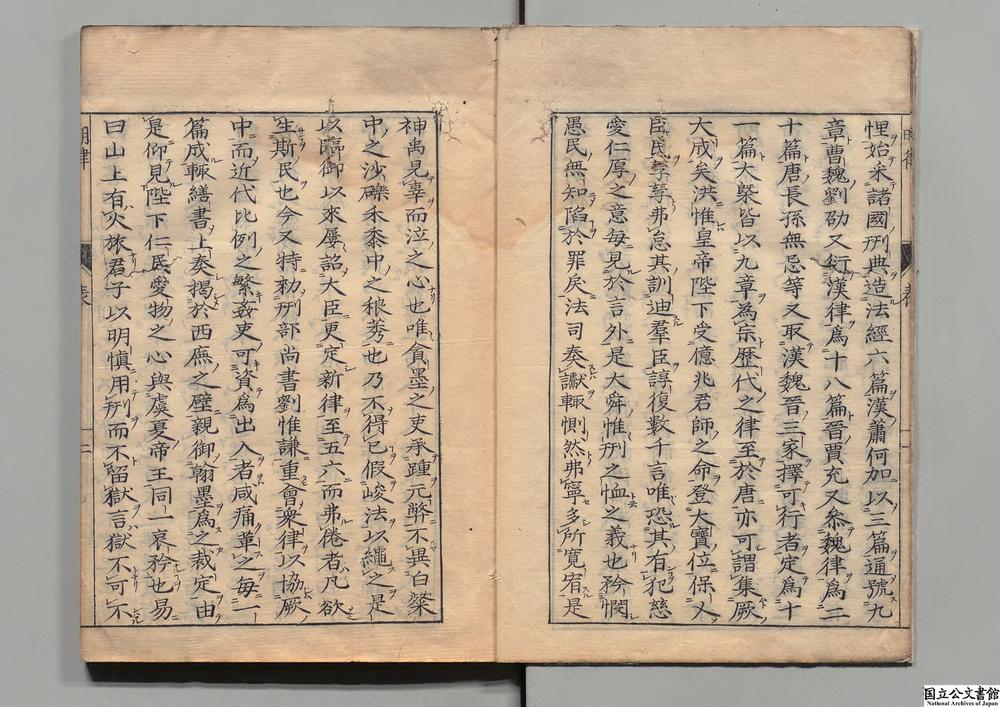 悝始采諸國刑典造法經六篇漢蕭何加以三篇通號九
章曹魏劉劭又衍漢律爲十八篇晉賈充又叅魏律爲二
十篇唐長孫無忌等又取漢魏晉三家擇可行者定爲十
一篇大槩皆以九章為宗歷代之律至於唐亦可謂集厥
大成矣洪惟皇帝陛下受億兆君師之命登大寶位保乂
臣民孳孳弗怠其訓迪羣臣諄復數千言唯恐其有犯慈
愛仁厚之意每見於言外是大舜惟刑之恤之義也矜憫
愚民無知陷於罪戾法司奏讞輒惻然弗寧多所寬宥是
神禹見辜而泣之心也唯貪墨之吏承踵元弊不異白粲
中之沙礫禾黍中之稂莠也乃不得已假峻法以繩之是
以臨御以來屢詔大臣更定新律至五六而弗倦者凡欲
生斯民也今又特勑刑部尚書劉惟謙重會衆律以協厥
中而近代比例之繁姦吏可資為出入者咸痛革之每一
篇成輒繕書上奏揭於西廡之壁親御翰墨爲之裁定由
是仰見陛下仁民愛物之心與虞夏帝王同一哀矜也易
曰山上有火旅君子以明慎用刑而不留獄言獄不可不
明律
表
二
国立公文書館
National Archives of Japan